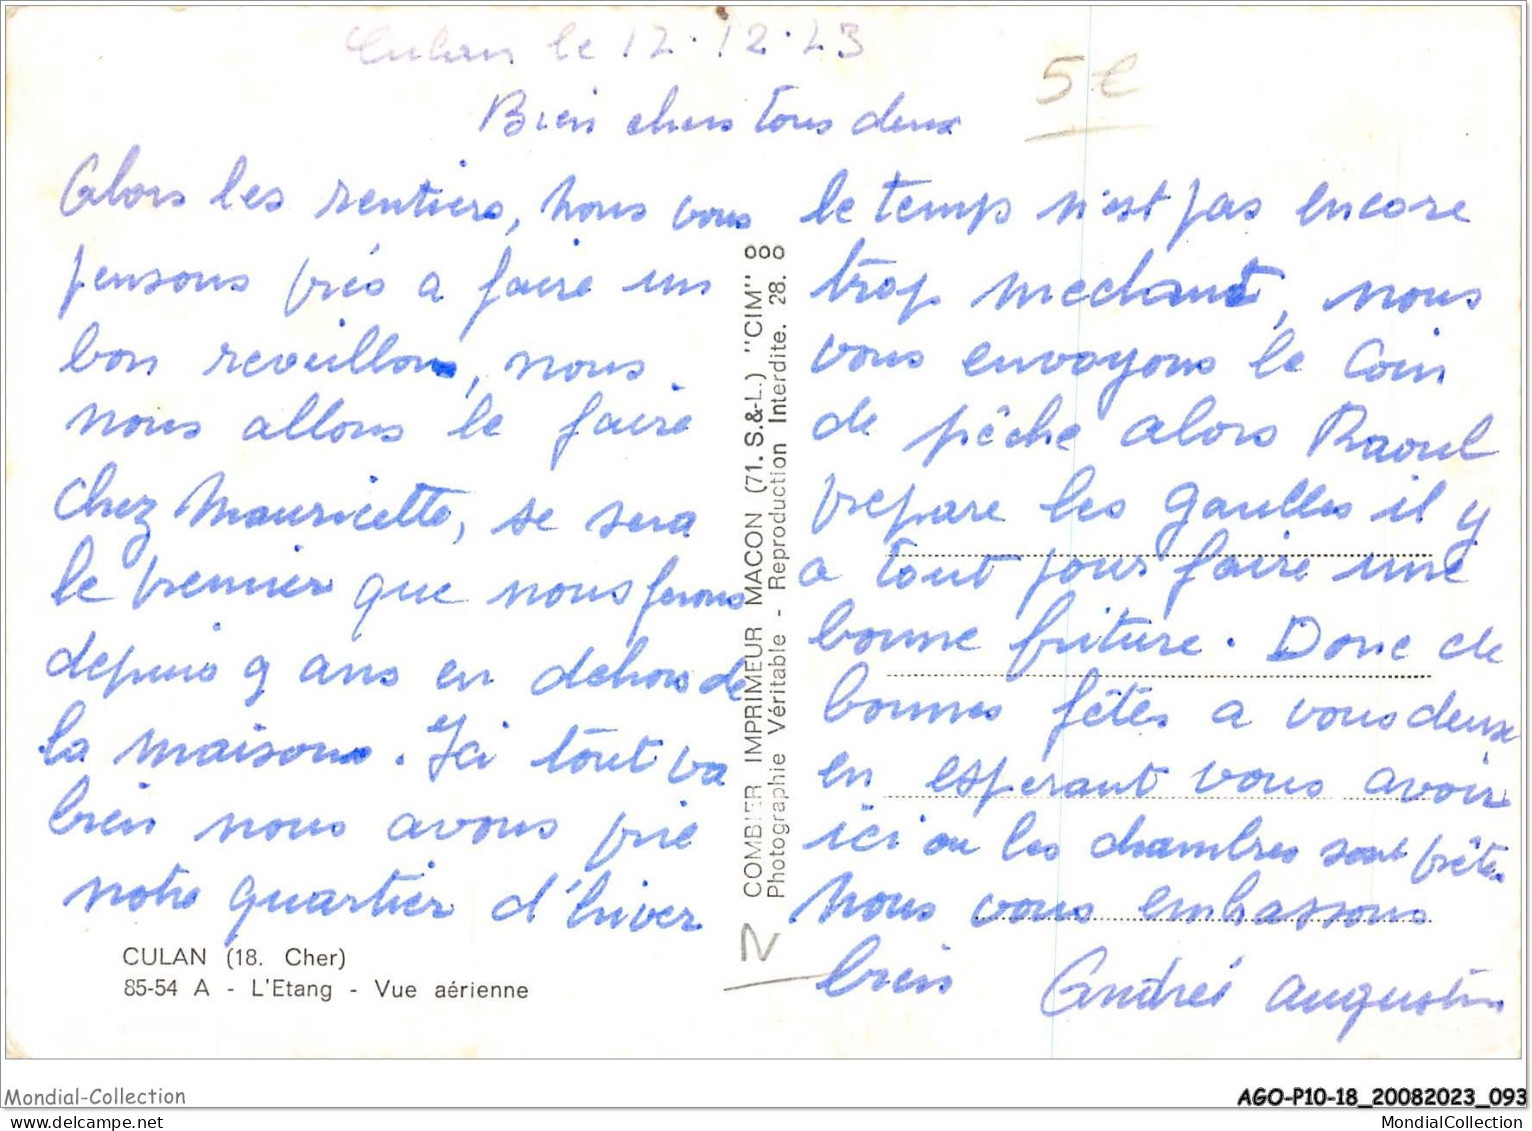 Culan le 12.12.73
5€
Bien chers tous deux
Alors les rentiers, nous vous
pensons près a faire un
bon reveillon, nous
nous allons le faire
chez Mauricette, se sera
le premier que nous ferons
depuis 9 ans en dehors de
la maison. Ici tout va
bien nous avons prie
notre quartier d'hiver
CULAN (18. Cher)
85-54 A - L'Etang - Vue aérienne
COMBIER IMPRIMEUR MACON (71. S.&-L.) "CIM"
Photographie Véritable - Reproduction Interdite. 28. 8
N
le temps n'est pas encore
trop mechant, nous
vous envoyons le coin
de pêche alors Raoul
prepare les gaulles il y
a tout pour faire une
bonne friture. Donc de
bonnes fêtes a vous deux
en esperant vous avoir
ici ou les chambres sont prêtes
Nous vous embrassons
bien André Augustin
Mondial-Collection
AGO-P10-18_20082023_093
MondialCollection